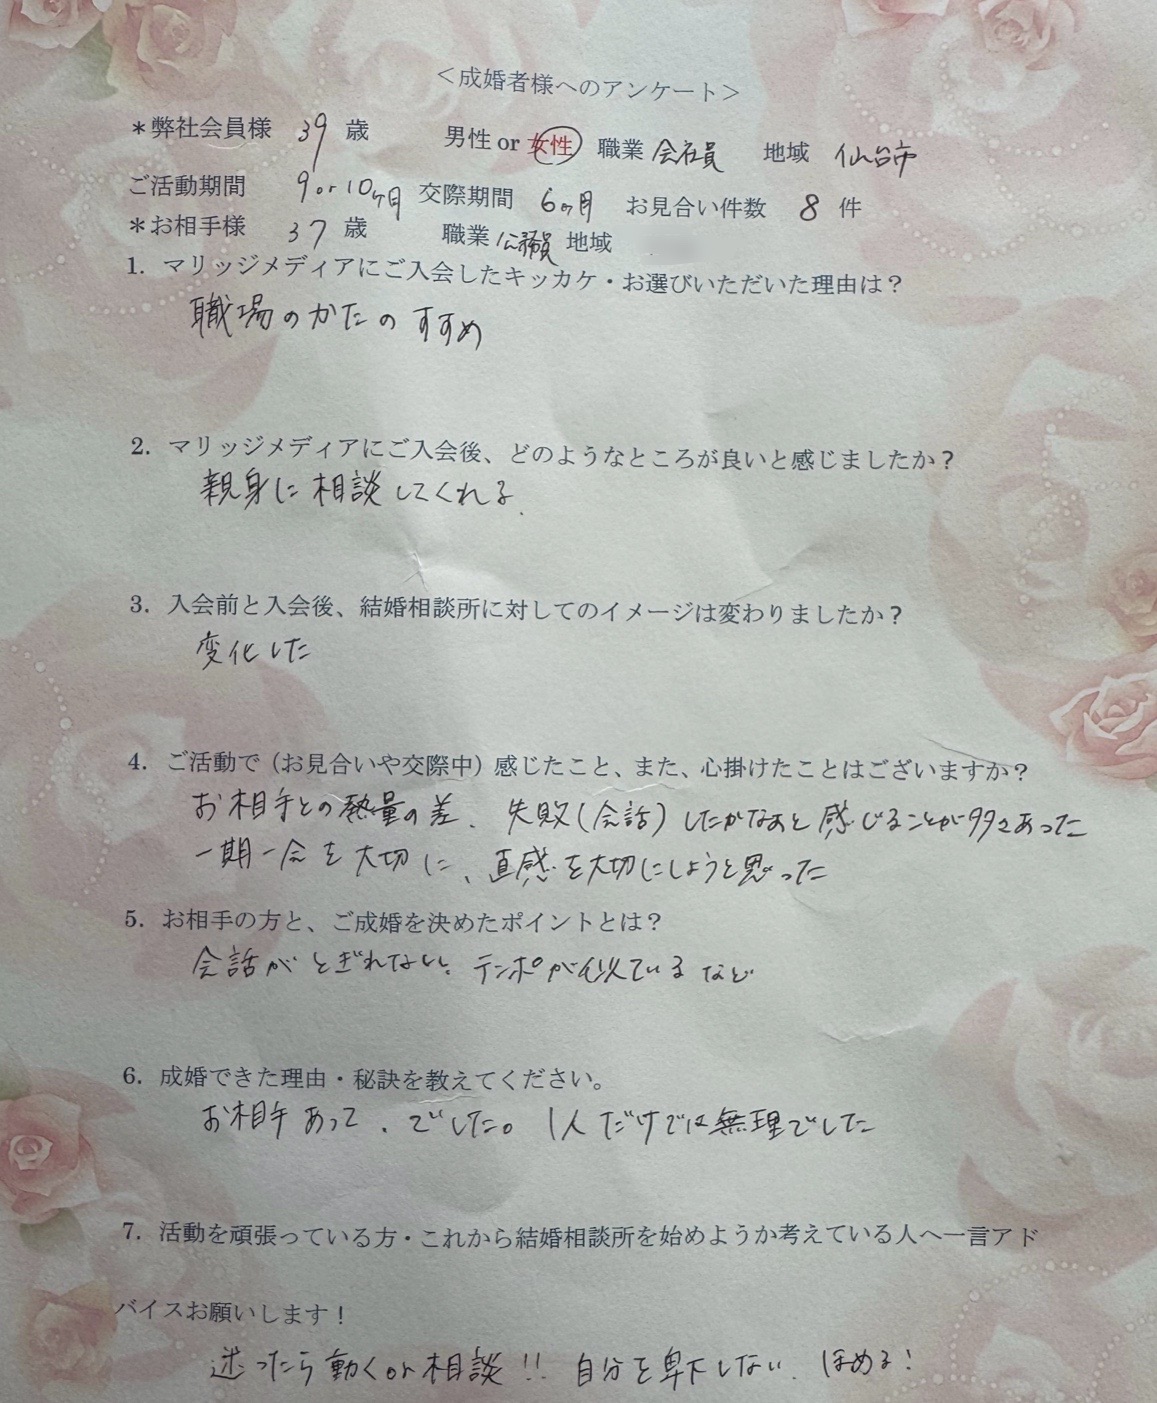 ＜成婚者様へのアンケート＞
＊弊社会員様 39 歳 男性 or 女性 職業 会社員 地域 仙台市
ご活動期間 9or10ヶ月 交際期間 6ヶ月 お見合い件数 8 件
＊お相手様 37 歳 職業 公務員 地域
1．マリッジメディアにご入会したキッカケ・お選びいただいた理由は？
職場のかたのすすめ
2．マリッジメディアにご入会後、どのようなところが良いと感じましたか？
親身に相談してくれる.
3．入会前と入会後、結婚相談所に対してのイメージは変わりましたか？
変化した
4．ご活動で（お見合いや交際中）感じたこと、また、心掛けたことはございますか？
お相手との熱量の差、失敗（会話）したかなぁと感じることが多々あった
一期一会を大切に、直感を大切にしようと思った
5．お相手の方と、ご成婚を決めたポイントとは？
会話がとぎれない。テンポが似ているなど
6．成婚できた理由・秘訣を教えてください。
お相手あって、でした。1人だけでは無理でした
7．活動を頑張っている方・これから結婚相談所を始めようか考えている人へ一言アド
バイスお願いします！
迷ったら動くor相談!! 自分を卑下しない、ほめる!